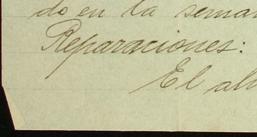 do en la sema
Reparaciones:
El al